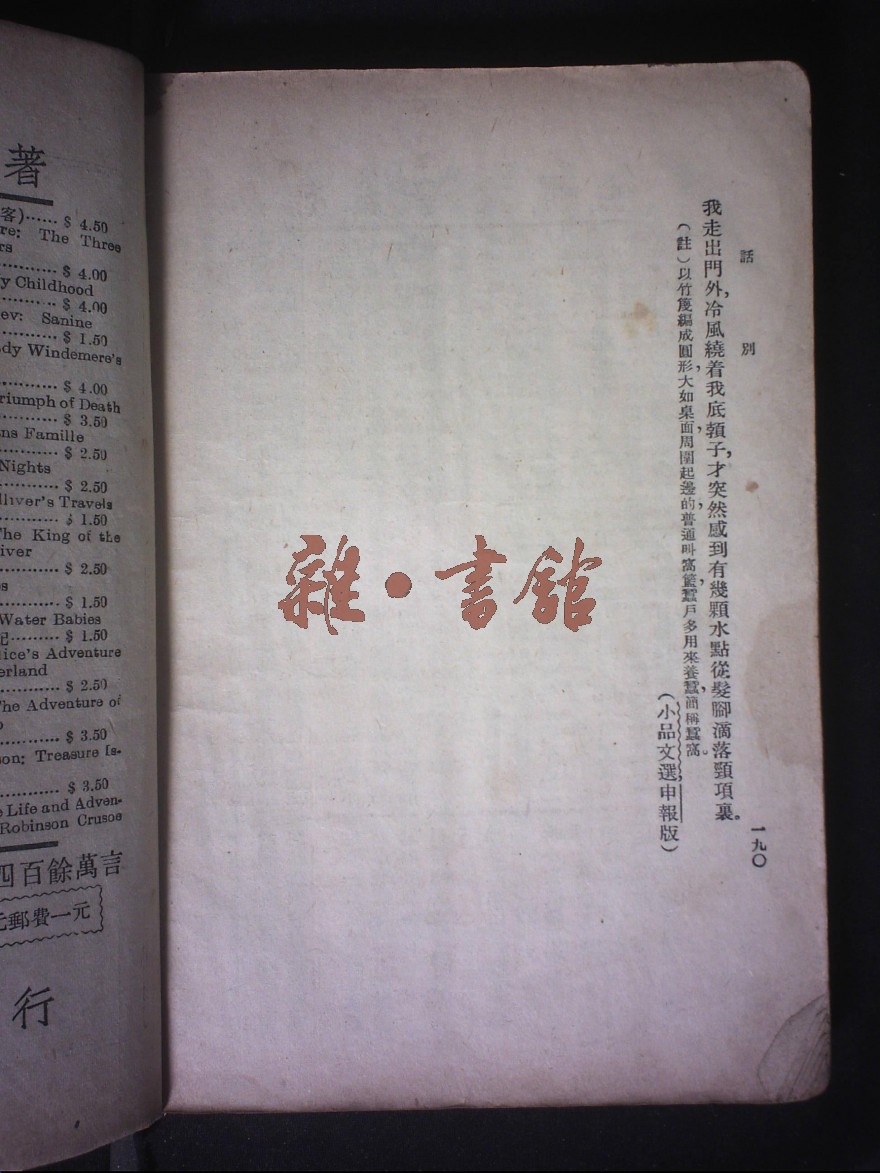 話別
一九〇
我走出門外，冷風繞着我底頸子，才突然感到有幾顆水點從髮腳滴落頸項裏。
（註）以竹篾編成圓形，大如桌面，周圍起邊的，普通叫窩籃，蠶戶多用來養蠶，簡稱蠶窩。
（小品文選，申報版）
雜·書館
著
客)...... $ 4.50
re: The Three
rs
............ $ 4.00
y Childhood
............ $ 4.00
ev: Sanine
............ $ 1.50
dy Windemere's
............ $ 4.00
riumph of Death
............ $ 3.50
ns Famille
............ $ 2.50
Nights
............ $ 2.50
lliver's Travels
............ $ 1.50
The King of the
iver
............ $ 2.50
s
............ $ 1.50
Water Babies
記......... $ 1.50
lice's Adventure
erland
............ $ 2.50
The Adventure of
............ $ 3.50
son: Treasure Is-
............ $ 3.50
e Life and Adven-
Robinson Crusoe
四百餘萬言
元郵費一元
行